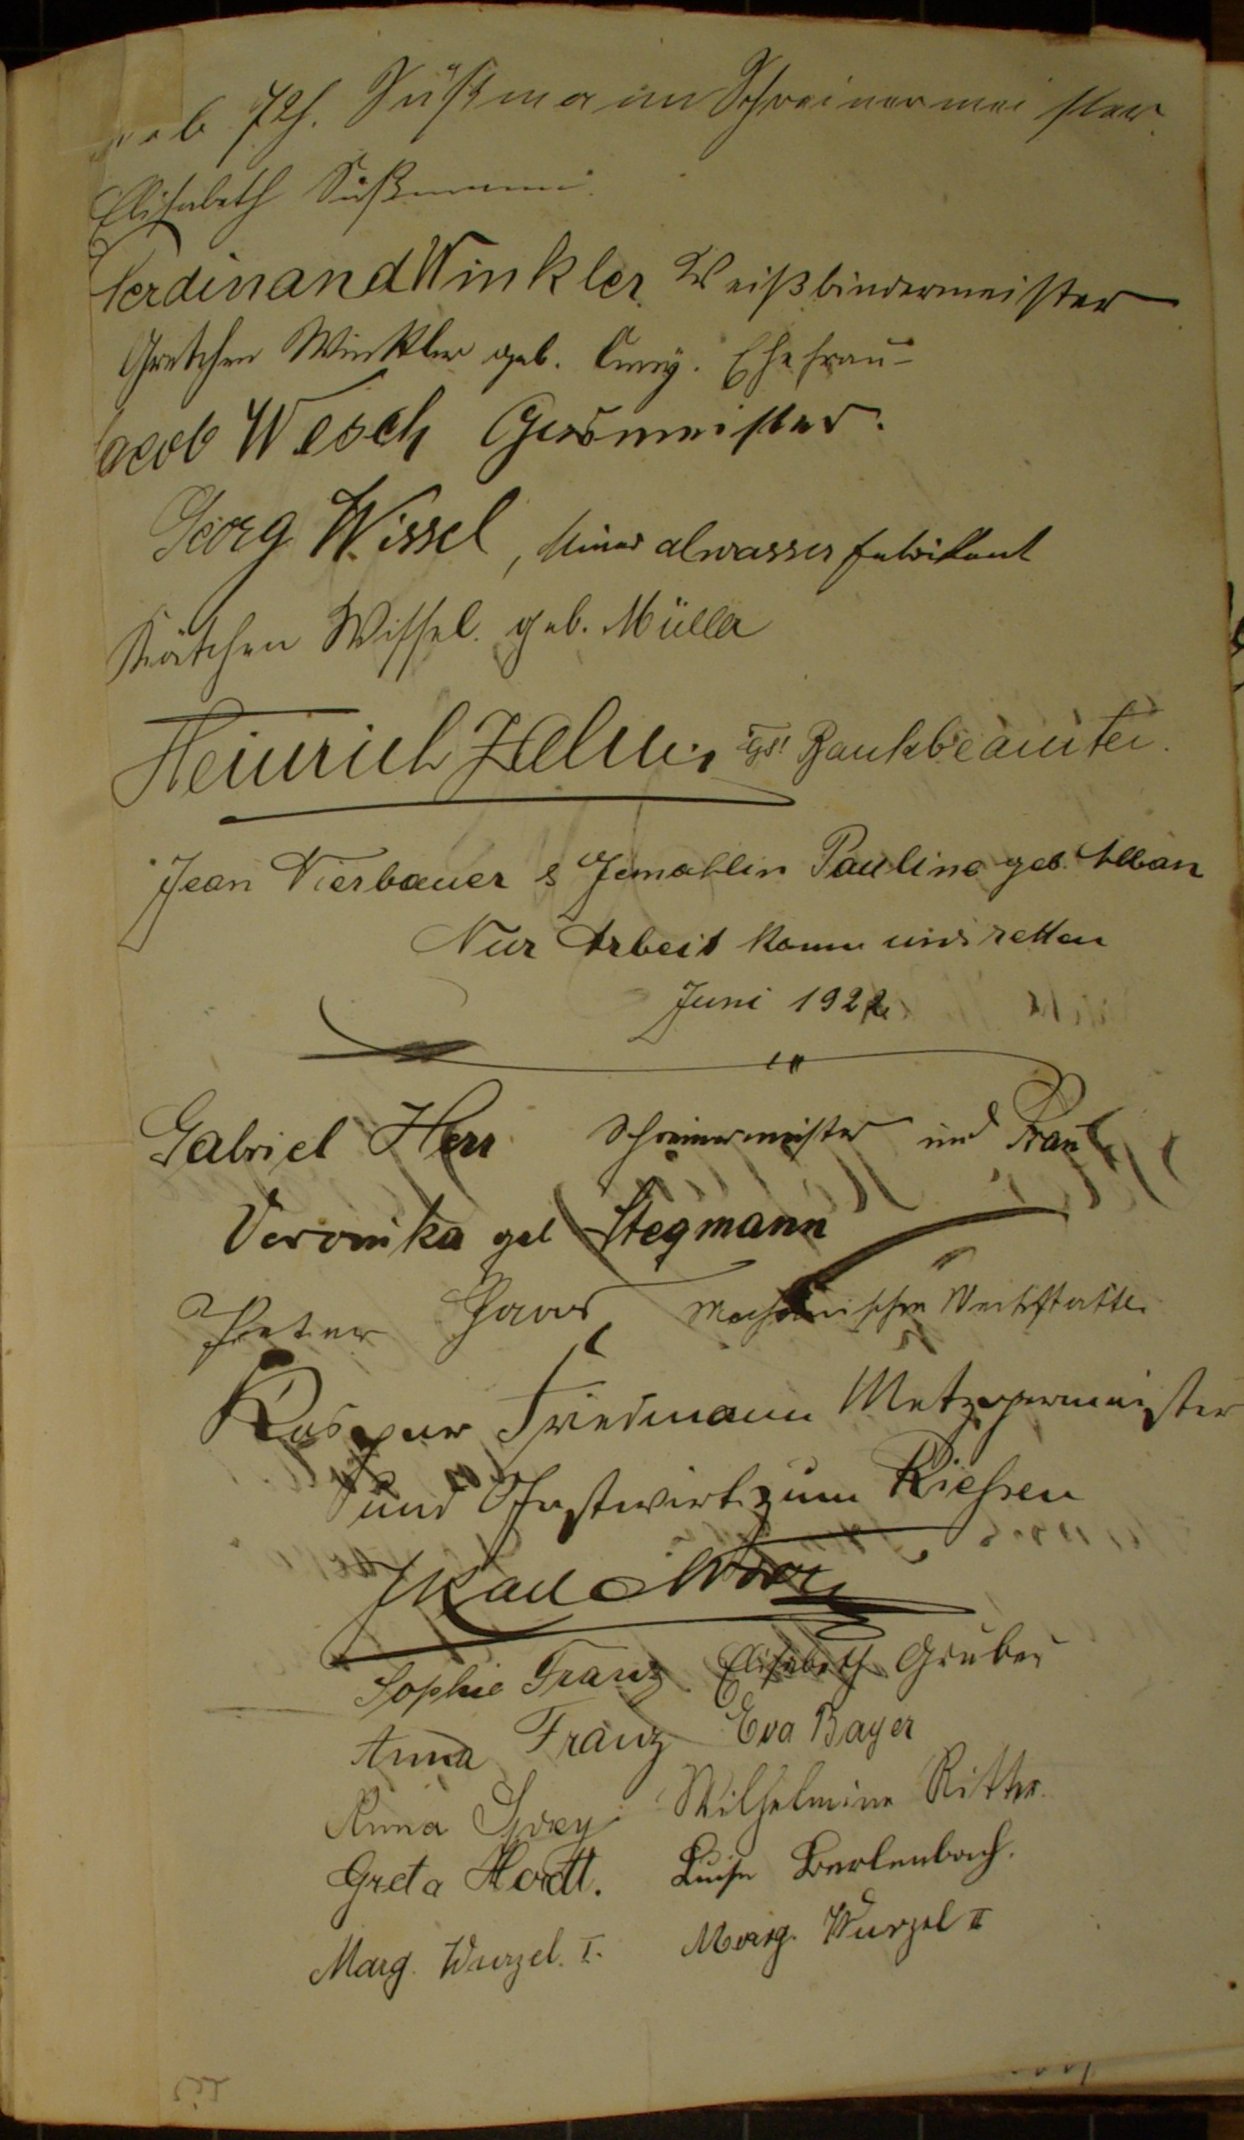 Jh. Süßmann Schreinermeister.
Elisabeth Süßmann.
Ferdinand Winkler Weißbindermeister
Gretchen Winkler geb. Ehefrau
Jacob Wesch Gasmeister.
Georg Wissel, Mineralwasserfabrikant
Kätchen Wissel. geb. Müller
Heinrich Bankbeamter.
Jean Vierbauer & Gemahlin Pauline geb. Alban
Nur Arbeit kann uns retten
Juni 1922
Gabriel Herr Schreinermeister und Frau
Veronika geb Stegmann
Peter Haas Mechanische Werkstätte
Kaspar Friedmann Metzgermeister
und Gastwirt zum Riesen
Karl
Sophie Franz Elisabeth Gruber
Anna Franz Eva Bayer
Anna Wilhelmine Ritter.
Greta Hordt. Luise Berlenbach.
Marg. Wurzel. I. Marg. Wurzel II